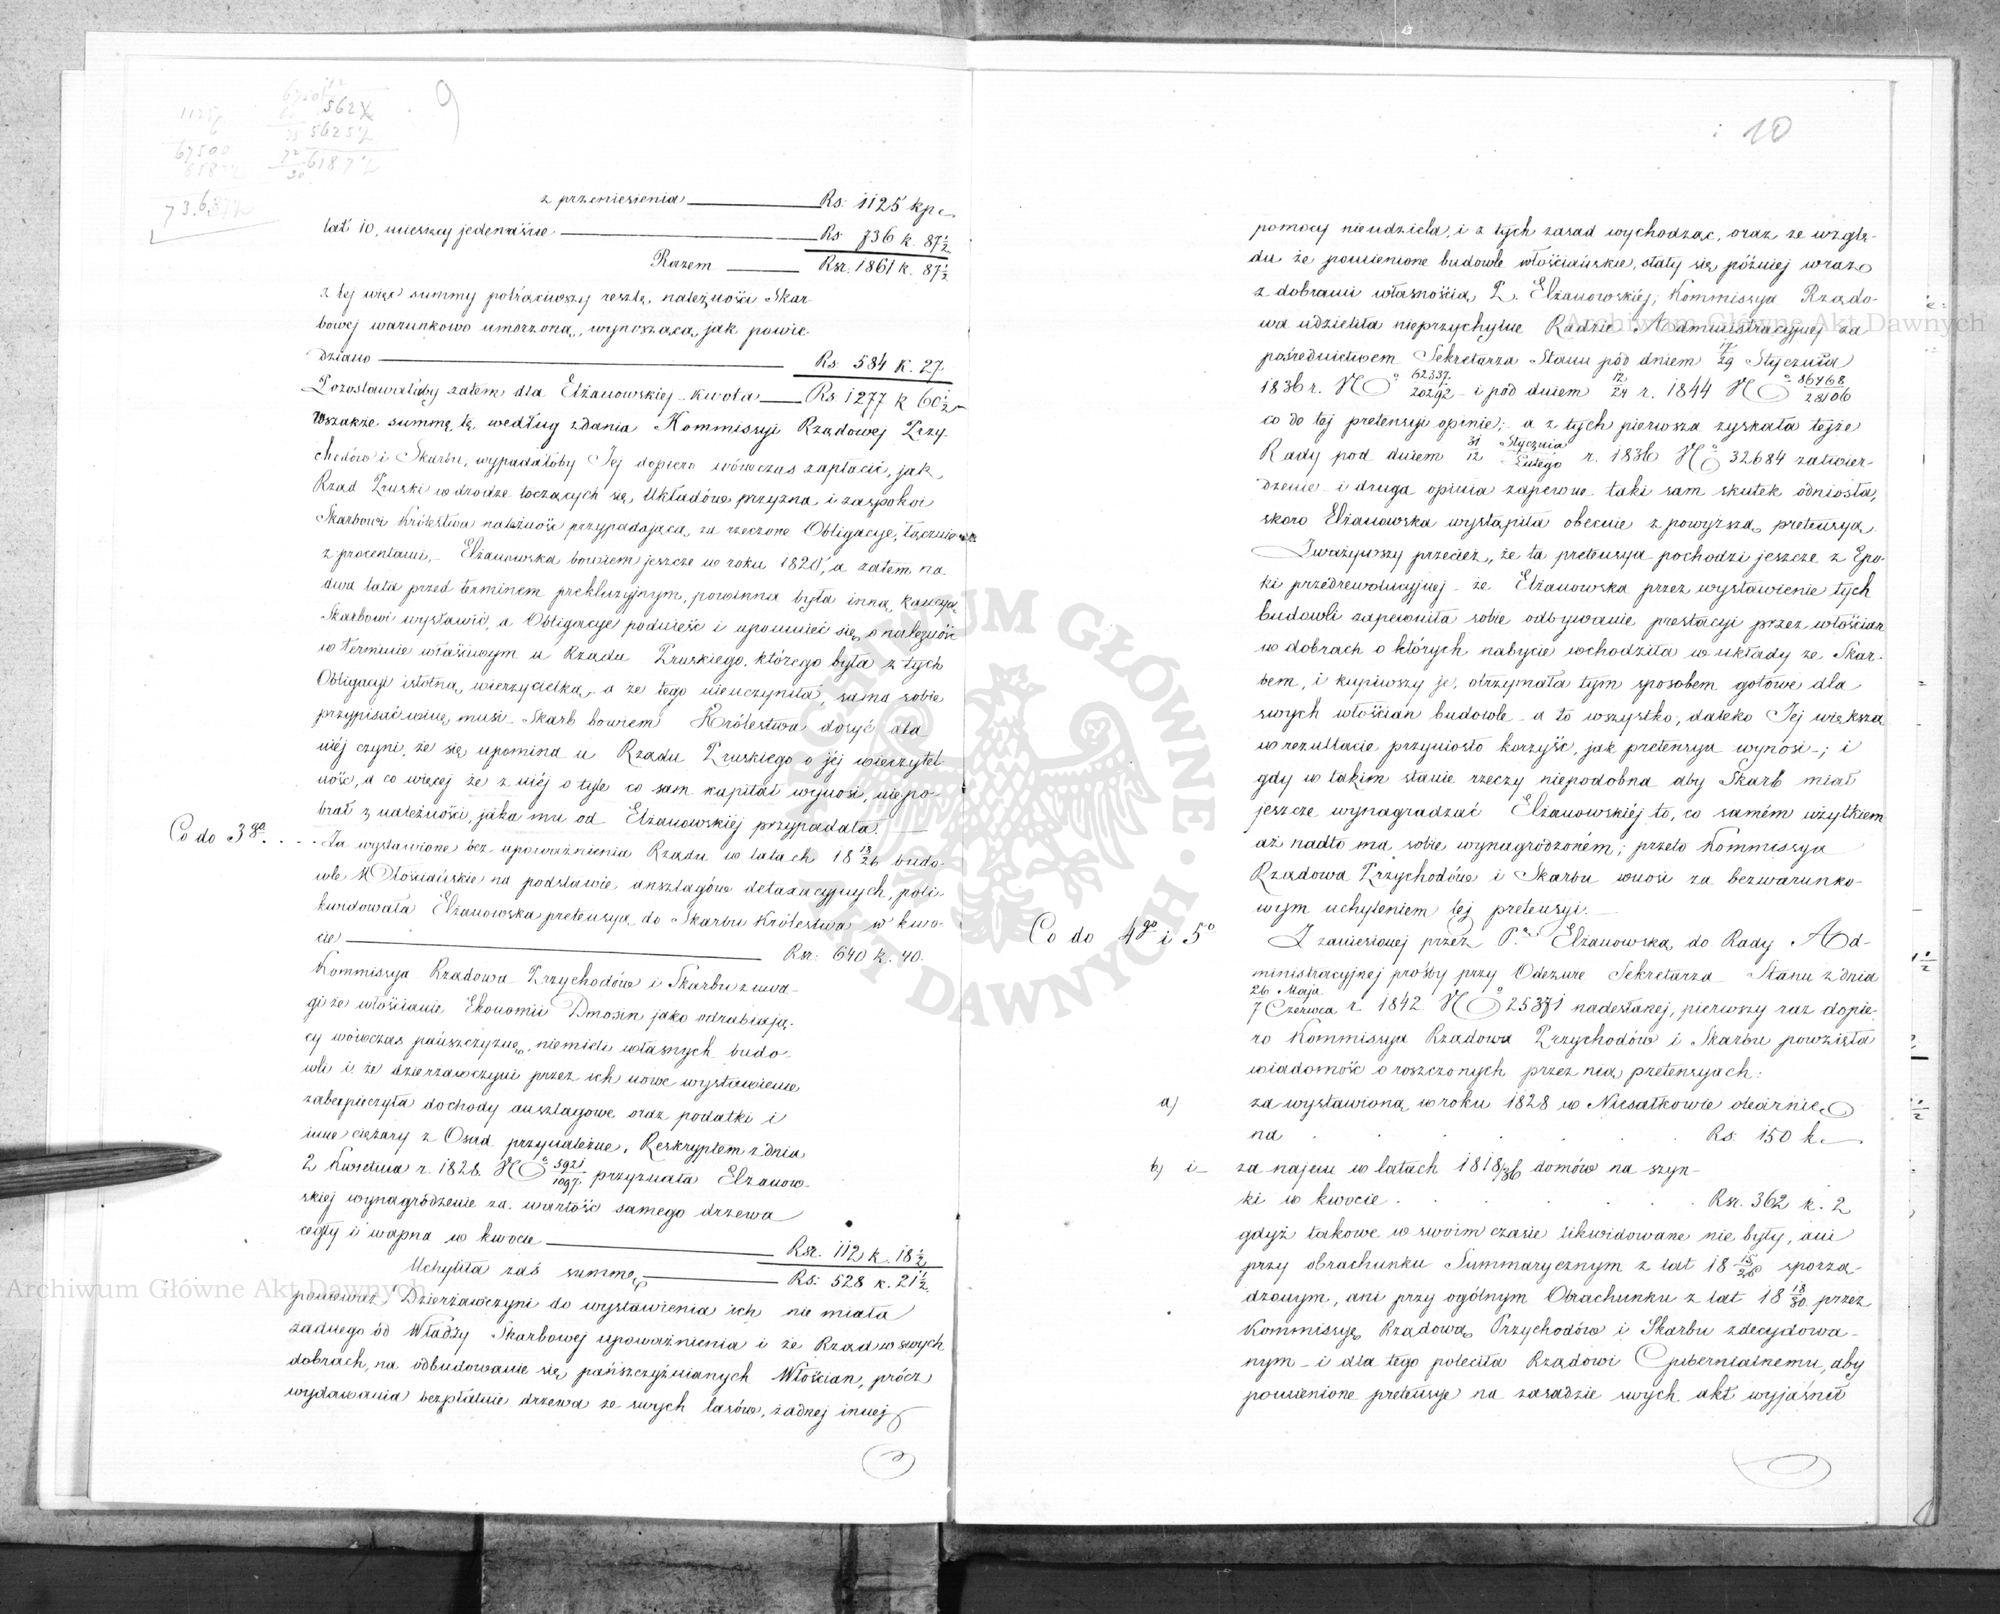 9
z przeniesienia Rs: 1125 kp.
lat 10, miesięcy jedenaście Rs 736 k. 87½
Razem Rsr. 1861 k. 87½
z tej więc summy potrąciwszy resztę, należności Skar-
bowej warunkowo umorzoną, wynoszącą, jak powie-
dziano Rs. 584 k. 27.
Pozostawałoby zatem dla Elżanowskiej kwota Rs 1277 k 60½
Wszakże summę tę, według zdania Kommissyi Rządowej Przy-
chodów i Skarbu, wypadałoby Jej dopiero wówczas zapłacić, jak
Rząd Pruski w drodze toczących się Układów przyzna i zaspokoi
Skarbowi Królestwa należność przypadającą za rzeczone Obligacye, łącznie
z procentami, – Elżanowska bowiem jeszcze w roku 1820, a zatem na
dwa lata przed terminem prekluzyjnym, powinna była inną kaucyą
Skarbowi wystawić, a Obligacye podnieść i upomnieć się o należność
w terminie właściwym u Rządu Pruskiego, którego była z tych
Obligacyi istotną wierzycielką, a że tego nieuczyniła, sama sobie
przypisać winę musi – Skarb bowiem Królestwa dosyć dla
niéj czyni, że się upomina u Rządu Pruskiego o jéj wierzytel-
ność, a co więcej że z niéj o tyle co sam kapitał wynosi, niepo-
brał z należności, jaka mu od Elżanowskiéj przypadała.
Co do 3go. Za wystawione bez upoważnienia Rządu w latach 18 18/26 budo-
wle Włościańskie na podstawie anszlagów detaxacyjnych, poli-
kwidowała Elżanowska pretensyą do Skarbu Królestwa w kwo-
cie Rsr. 640 k. 40.
Kommissya Rządowa Przychodów i Skarbu z uwa-
gi że włościanie Ekonomii Dmosin jako odrabiają-
cy wówczas pańszczyznę, niemieli własnych budo-
wli i że dzierżawczyni przez ich nowe wystawienie
zabezpieczyła dochody anszlagowe oraz podatki i
inne ciężary z Osad przynależne, Reskryptem z dnia
2 Kwietnia r. 1828 No 5921/1097 przyznała Elżanow-
skiej wynagrodzenie za wartość samego drzewa
cegły i wapna w kwocie Rsr. 112 k. 18½
Uchyliła zaś summę Rs: 528 k. 21½
ponieważ Dzierżawczyni do wystawienia ich nie miała
żadnego od Władzy Skarbowej upoważnienia i że Rząd w swych
dobrach, na odbudowanie się pańszczyźnianych Włościan, prócz
wydawania bezpłatnie drzewa ze swych lasów, żadnej innej
10
pomocy nieudziela, i z tych zasad wychodząc, oraz ze wzglę-
du że pomienione budowle włościańskie, stały się później wraz
z dobrami własnością P. Elżanowskiéj, Kommissya Rządo-
wa udzieliła nieprzychylne Radzie Administracyjnej za
pośrednictwem Sekretarza Stanu pod dniem 17/29 Stycznia
1836 r. No 62337/20292 i pod dniem 12/24 r. 1844 No 86468/28106
co do tej pretensyi opinie; a z tych pierwsza zyskała tejże
Rady pod dniem 31 Stycznia/12 Lutego r. 1836 No 32684 zatwier-
dzenie i druga opinia zapewne taki sam skutek odniosła,
skoro Elżanowska wystąpiła obecnie z powyższą pretensyą.
Zważywszy przecież, że ta pretensya pochodzi jeszcze z Epo-
ki przedrewolucyjnej – że Elżanowska przez wystawienie tych
budowli zapewniła sobie odbywanie prestacyi przez włościan
w dobrach o których nabycie wchodziła w układy ze Skar-
bem, i kupiwszy je, otrzymała tym sposobem gotowe dla
swych włościan budowle – a to wszystko, daleko Jej większą
w rezultacie przyniosło korzyść, jak pretensya wynosi –; i
gdy w takim stanie rzeczy niepodobna aby Skarb miał
jeszcze wynagradzać Elżanowskiéj to, co samém użytkiem
aż nadto ma sobie wynagrodzoném; przeto Kommissya
Rządowa Przychodów i Skarbu wnosi za bezwarunko-
wym uchyleniem tej pretensyi. –
Co do 4go i 5o Z zaniesionej przez P. Elżanowską do Rady Ad-
ministracyjnej prośby przy Odezwie Sekretarza Stanu z dnia
26 Maja/7 Czerwca r. 1842 No 25371 nadesłanej, pierwszy raz dopie-
ro Kommissya Rządowa Przychodów i Skarbu powzięła
wiadomość o roszczonych przez nią pretensyach:
a) za wystawioną w roku 1828 w Niesułkowie owczarnię
na Rs: 150 k.
b) i za najem w latach 1818/26 domów na szyn-
ki w kwocie Rsr. 362 k. 2
gdyż takowe w swoim czasie likwidowane nie były, ani
przy obrachunku Summarycznym z lat 18 15/26 sporzą-
dzonym, ani przy ogólnym Obrachunku z lat 18 18/30 przez
Kommissyę Rządową Przychodów i Skarbu zdecydowa-
nym – i dla tego poleciła Rządowi Gubernialnemu, aby
pomienione pretensye na zasadzie swych akt wyjaśnił
Archiwum Główne Akt Dawnych
Archiwum Główne Akt Dawnych
ARCHIWUM GŁÓWNE AKT DAWNYCH